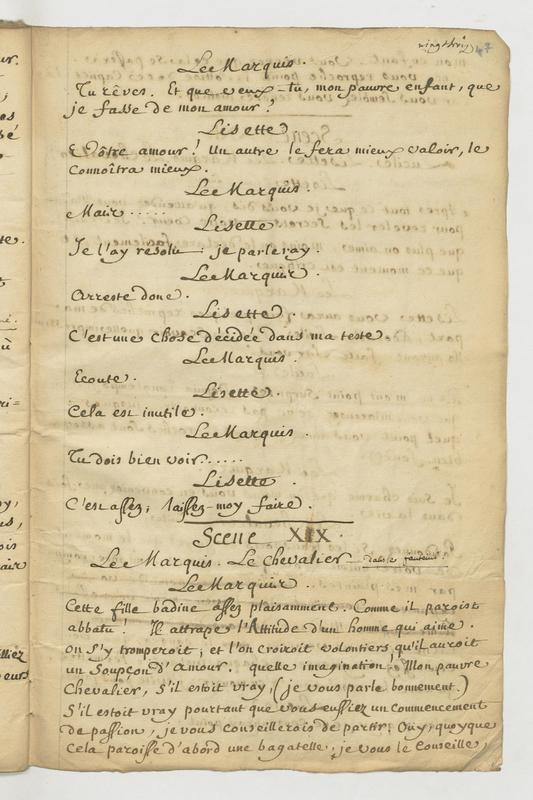 vingthuit 47
Le Marquis.
Tu rêves. Et que veux-tu, mon pauvre enfant, que
je fasse de mon amour?
Lisette
Vôtre amour! Un autre le fera mieux valoir, le
connoîtra mieux.
Le Marquis.
Mais.....
Lisette
Je l'ay resolu: je parleray.
Le Marquis.
Arreste donc.
Lisette.
C'est une chose décidée dans ma teste.
Le Marquis.
Ecoute.
Lisette.
Cela est inutile.
Le Marquis.
Tu dois bien voir.....
Lisette
C'est assez; laissez-moy faire.
Scene XIX.
Le Marquis. Le Chevalier dans le fauteuil.
Le Marquis.
Cette fille badine assez plaisamment. Comme il paroist
abbatu! Il attrape l'Attitude d'un homme qui aime.
On s'y tromperoit; et l'on croiroit volontiers qu'il auroit
un Soupçon d'amour. quelle imagination! Mon pauvre
Chevalier, S'il estoit vray, (je vous parle bonnement.)
S'il estoit vray pourtant que vous eussiez un commencement
de passion, je vous conseillerois de partir; Ouy, quoyque
Cela paroisse d'abord une bagatelle, je vous le conseille;